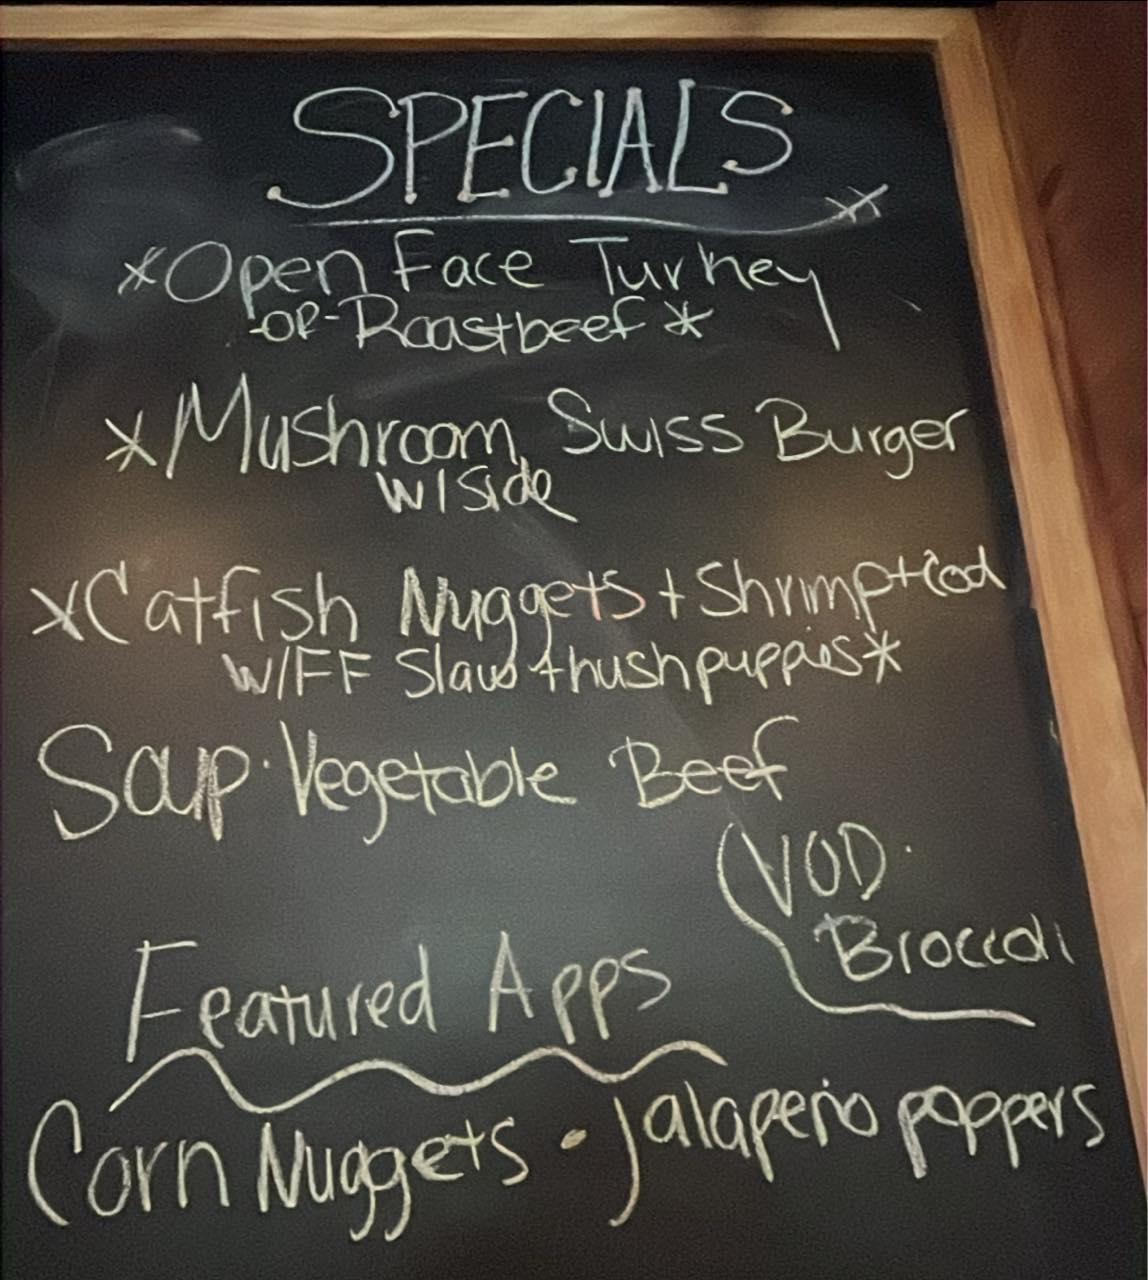 SPECIALS
*Open Face Turkey
-OR- Roastbeef *
*Mushroom Swiss Burger
w/Side
*Catfish Nuggets + Shrimp + Cod
w/FF Slaw + hushpuppies*
Soup. Vegetable Beef
VOD.
Broccoli
Featured Apps
Corn Nuggets • Jalapeño poppers